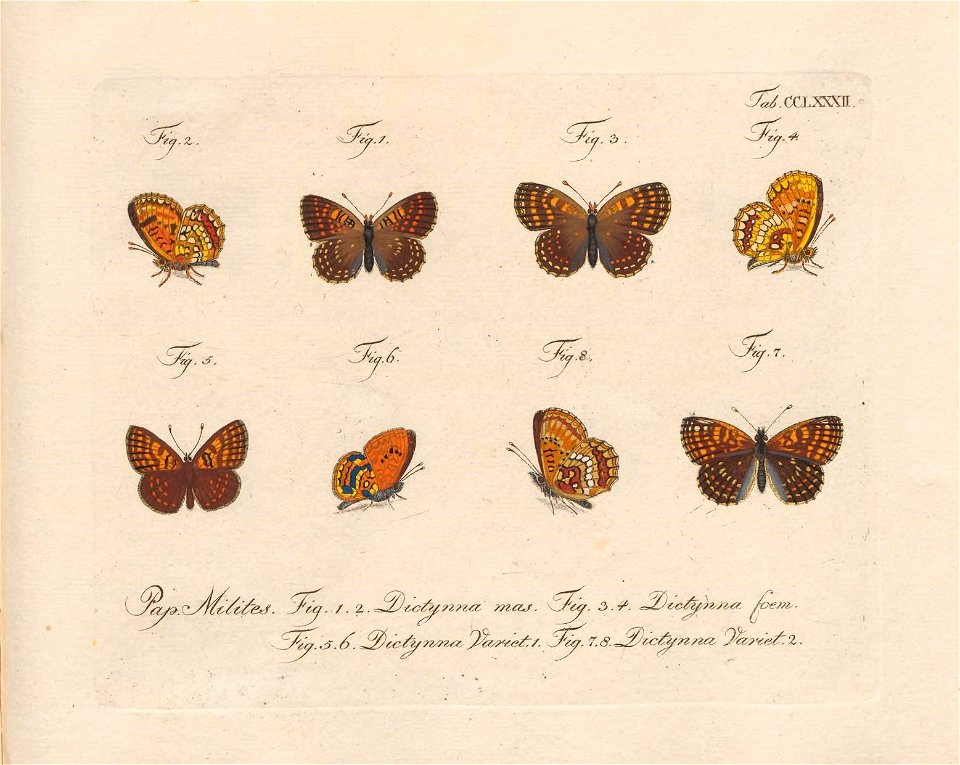 Tab. CCLXXXII.
Fig. 2. Fig. 1. Fig. 3. Fig. 4.
Fig. 5. Fig. 6. Fig. 8. Fig. 7.
Pap. Milites. Fig. 1. 2. Dictynna mas. Fig. 3. 4. Dictynna foem.
Fig. 5. 6. Dictynna Variet. 1. Fig. 7. 8. Dictynna Variet. 2.